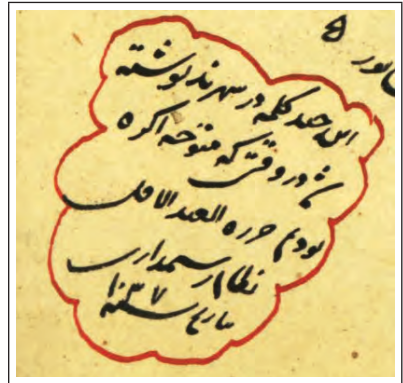 این چند کلمه در سهرند نوشته
شد در وقتی که متوجه اگره
بودم حرره العبد الاقل
نظام رستمداری
بتاریخ سنه ۱۰۳۷